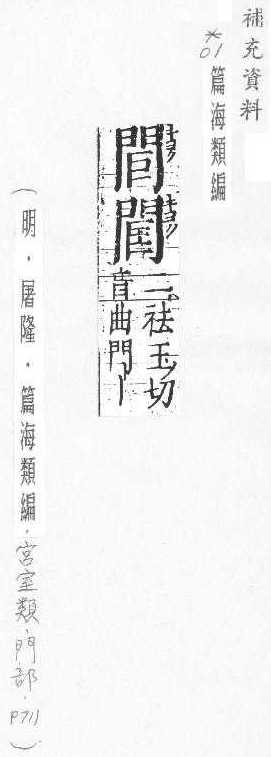 補充資料
*01 篇海類編
二祛玉切
音曲門丨
(明．屠隆．篇海類編．宮室類．門部．P711)